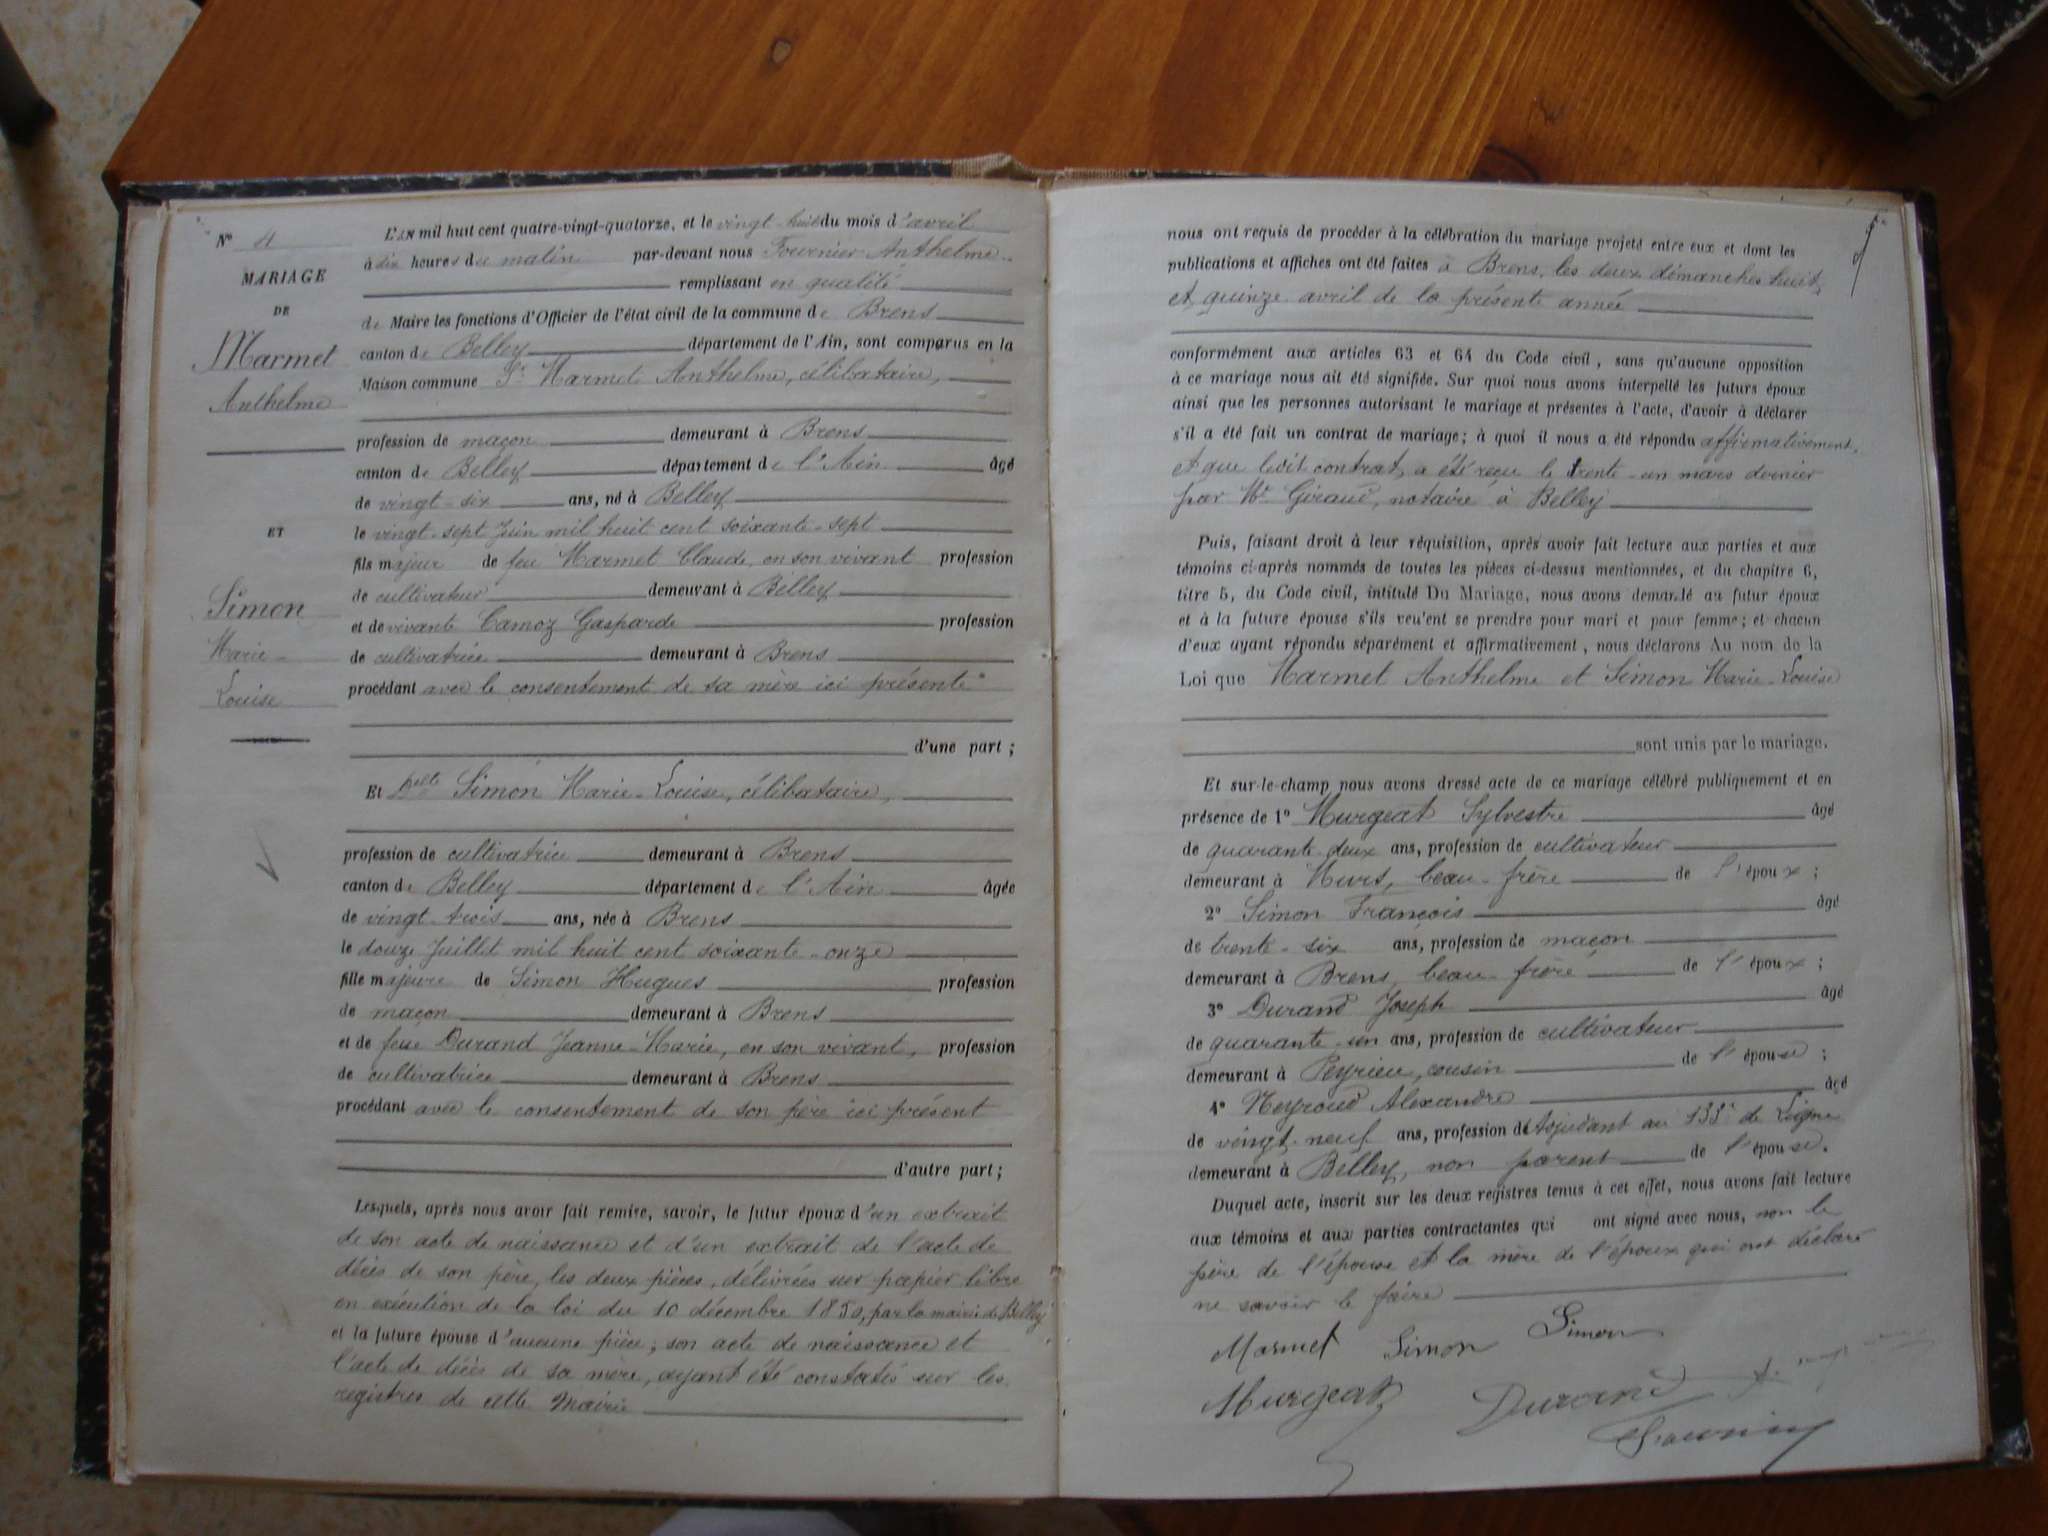 N° 4
MARIAGE
DE
Marmet
Anthelme
ET
Simon
Marie
Louise
L'AN mil huit cent quatre-vingt-quatorze, et le vingt-huit du mois d'avril
à dix heures du matin par-devant nous Fournier Anthelme
remplissant en qualité
de Maire les fonctions d'Officier de l'état civil de la commune de Brens
canton de Belley département de l'Ain, sont comparus en la
Maison commune Sr Marmet Anthelme, célibataire,
profession de maçon demeurant à Brens
canton de Belley département de l'Ain âgé
de vingt-six ans, né à Belley
le vingt-sept Juin mil huit cent soixante-sept
fils majeur de feu Marmet Claude, en son vivant profession
de cultivateur demeurant à Belley
et de vivante Camoz Gasparde profession
de cultivatrice demeurant à Brens
procédant avec le consentement de sa mère ici présente
d'une part ;
Et Delle Simon Marie-Louise, célibataire,
profession de cultivatrice demeurant à Brens
canton de Belley département de l'Ain âgée
de vingt-trois ans, née à Brens
le douze Juillet mil huit cent soixante-onze
fille majeure de Simon Hugues profession
de maçon demeurant à Brens
et de feue Durand Jeanne-Marie, en son vivant, profession
de cultivatrice demeurant à Brens
procédant avec le consentement de son père ici présent
d'autre part ;
Lesquels, après nous avoir fait remise, savoir, le futur époux d'un extrait
de son acte de naissance et d'un extrait de l'acte de
décès de son père, les deux pièces, délivrées sur papier libre
en exécution de la loi du 10 décembre 1850, par la mairie de Belley
et la future épouse d'aucune pièce ; son acte de naissance et
l'acte de décès de sa mère, ayant été constatés sur les
registres de cette Mairie
nous ont requis de procéder à la célébration du mariage projeté entre eux et dont les
publications et affiches ont été faites à Brens, les deux dimanches huit
et quinze avril de la présente année
conformément aux articles 63 et 64 du Code civil, sans qu'aucune opposition
à ce mariage nous ait été signifiée. Sur quoi nous avons interpellé les futurs époux
ainsi que les personnes autorisant le mariage et présentes à l'acte, d'avoir à déclarer
s'il a été fait un contrat de mariage ; à quoi il nous a été répondu affirmativement,
et que ledit contrat, a été reçu le trente-un mars dernier
par Me Giraud, notaire à Belley
Puis, faisant droit à leur réquisition, après avoir fait lecture aux parties et aux
témoins ci-après nommés de toutes les pièces ci-dessus mentionnées, et du chapitre 6,
titre 5, du Code civil, intitulé Du Mariage, nous avons demandé au futur époux
et à la future épouse s'ils veulent se prendre pour mari et pour femme ; et chacun
d'eux ayant répondu séparément et affirmativement, nous déclarons Au nom de la
Loi que Marmet Anthelme et Simon Marie-Louise
sont unis par le mariage.
Et sur-le-champ nous avons dressé acte de ce mariage célébré publiquement et en
présence de 1° Murgeat Sylvestre âgé
de quarante-deux ans, profession de cultivateur
demeurant à Murs, beau-frère de l'époux ;
2° Simon François âgé
de trente-six ans, profession de maçon
demeurant à Brens, beau-frère de l'époux ;
3° Durand Joseph âgé
de quarante-un ans, profession de cultivateur
demeurant à Peyrieu, cousin de l'épouse ;
4° Neyroud Alexandre âgé
de vingt-neuf ans, profession de Adjudant au 133e de Ligne
demeurant à Belley, non parent de l'épouse.
Duquel acte, inscrit sur les deux registres tenus à cet effet, nous avons fait lecture
aux témoins et aux parties contractantes qui ont signé avec nous, non le
père de l'épouse et la mère de l'époux qui ont déclaré
ne savoir le faire
Marmet Simon Simon
Murgeat Durand
Fournier